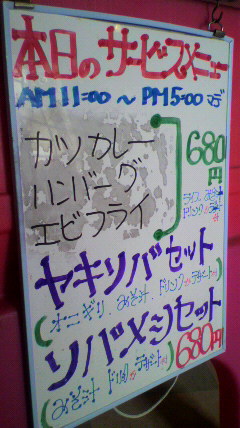 本日のサービスメニュー
AM11:00 ~ PM5:00 まで
カツカレー
ハンバーグ
エビフライ
680円
ヤキソバセット
(オニギリ、みそ汁、ドリンク
ソバメシセット
(みそ汁
680円